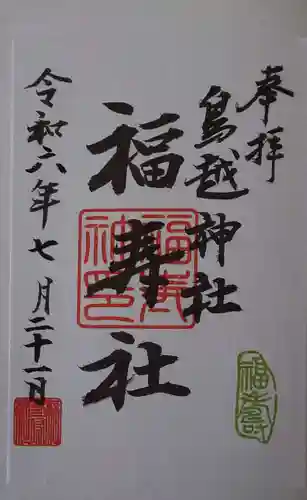 奉拝
鳥越神社
福寿社
令和六年七月二十一日
福寿神印
福寿